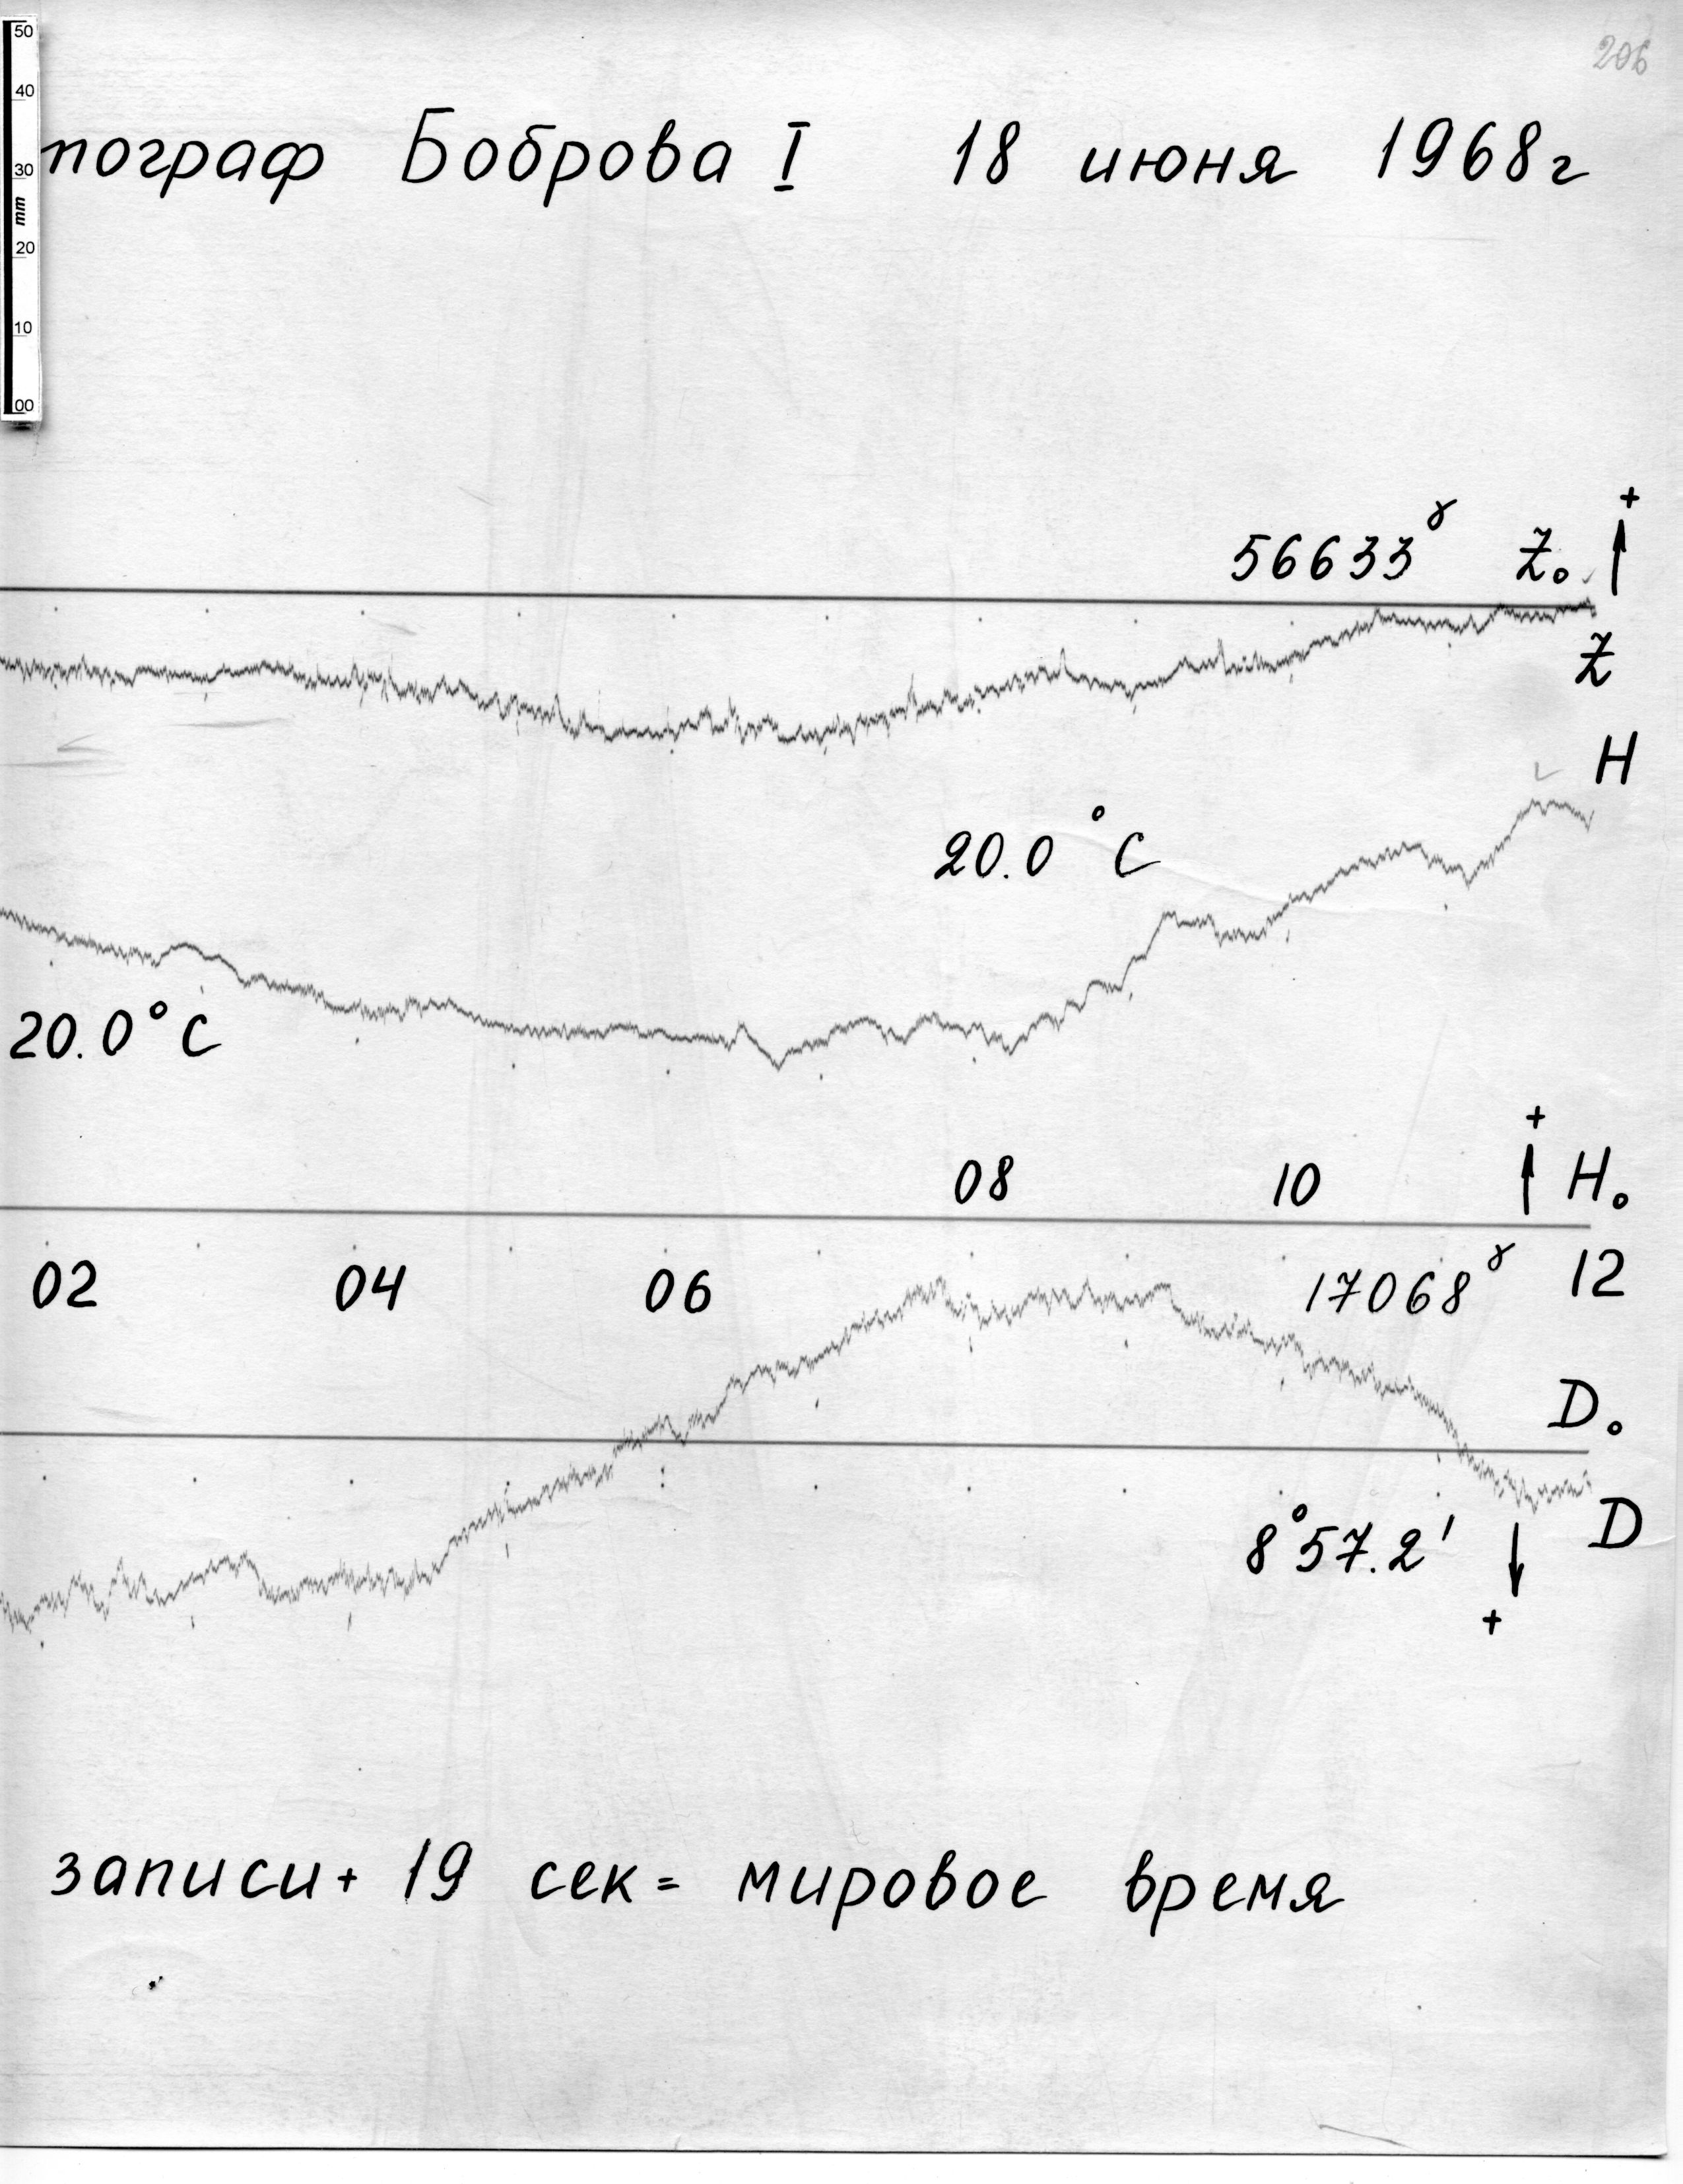 206
50
40
30
mm
20
10
00
тограф Боброва I 18 июня 1968г
+
56633ɣ Z₀
Z
H
20.0°C
20.0°C
+
08 10 H₀
02 04 06 17068ɣ 12
D₀
8°57.2' D
+
записи + 19 сек = мировое время